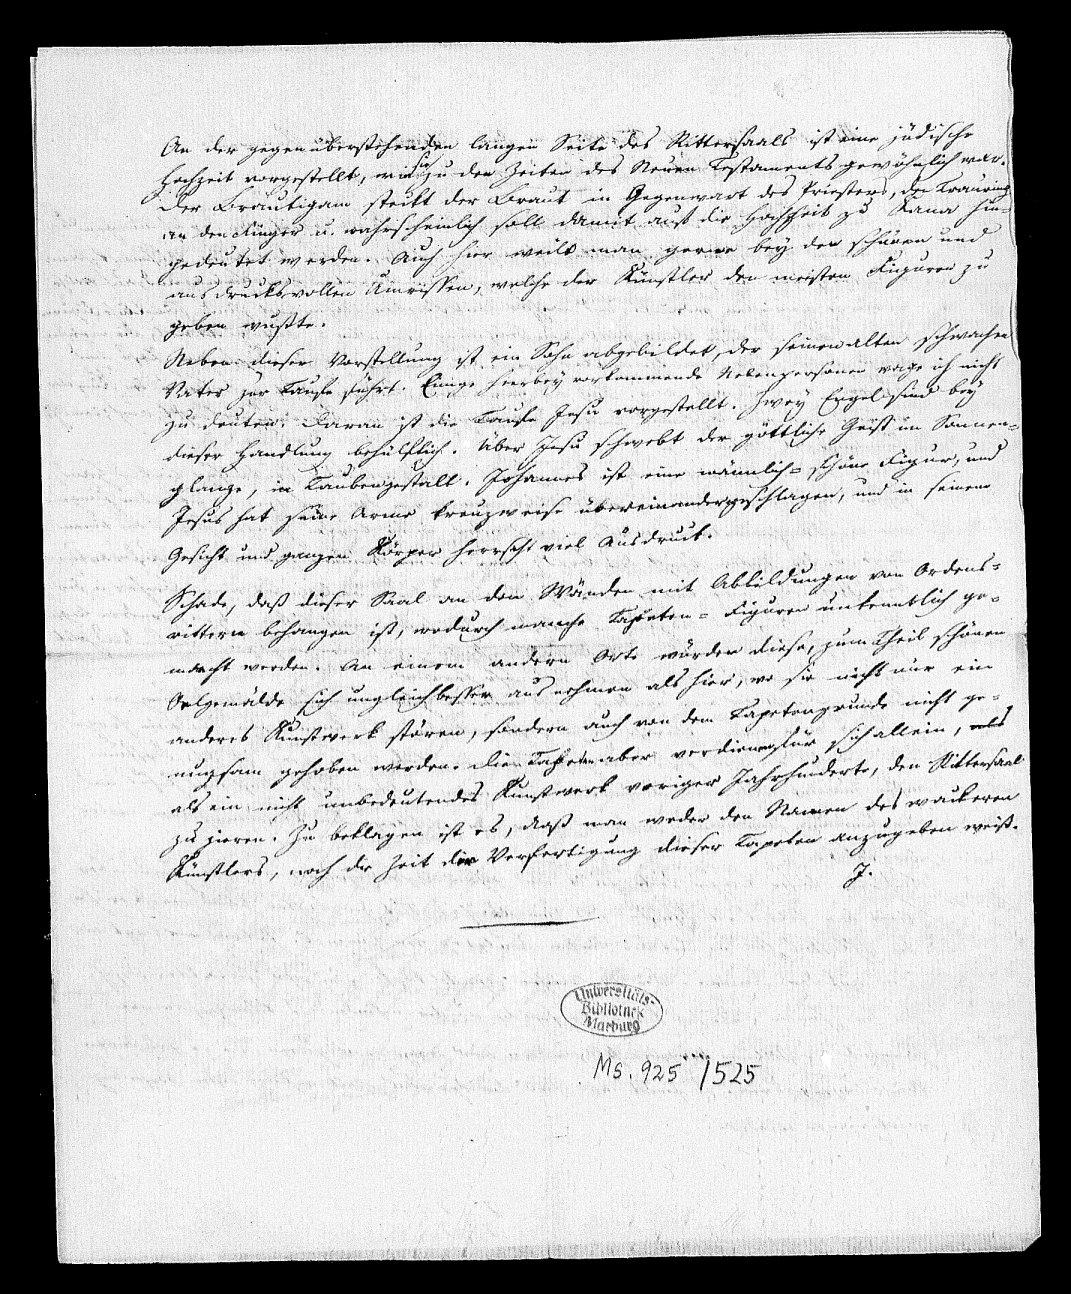 An der gegenüberstehenden langen Seite des Rittersaals ist eine jüdische
Hochzeit vorgestellt, wie sie zu den Zeiten des Neuen Testaments gewöhnlich war.
Der Bräutigam steckt der Braut in Gegenwart des Priesters, den Trauring
an den Finger u. wahrscheinlich soll damit auf die Hochzeit zu Kana hin-
gedeutet werden. Auch hier weilt man gerne bey den schönen und
ausdrucksvollen Umrissen, welche der Künstler den meisten Figuren zu
geben wußte.
Neben dieser Vorstellung ist ein Sohn abgebildet, der seinen alten schwachen
Vater zur Taufe führt. Einige hierbey vorkommende Nebenpersonen wage ich nicht
zu deuten. Daran ist die Taufe Jesu vorgestellt. Zwey Engel sind bey
dieser Handlung behülflich. Über Jesu schwebt der göttliche Geist im Sonnen-
glanze, in Taubengestalt. Johannes ist eine männlich-schöne Figur, und
Jesus hat seine Arme kreuzweise übereinandergeschlagen, und in seinem
Gesicht und ganzen Körper herrscht viel Ausdruck.
Schade, daß dieser Saal an den Wänden mit Abbildungen von Ordens-
rittern behangen ist, wodurch manche Tapeten-Figuren unkenntlich ge-
macht werden. An einem andern Orte würden diese, zum Theil schönen
Oelgemälde sich ungleich besser ausnehmen als hier, wo sie nicht nur ein
anderes Kunstwerk stören, sondern auch von dem Tapetengrunde nicht ge-
nugsam gehoben werden. Die Tapeten aber verdienen für sich allein,
als ein nicht unbedeutendes Kunstwerk voriger Jahrhunderte, den Rittersaal
zu zieren. Zu beklagen ist es, daß man weder den Namen des wackeren
Künstlers, noch die Zeit der Verfertigung dieser Tapeten anzugeben weiß.
J.
Universitäts-
Bibliothek
Marburg
Ms. 925 /525